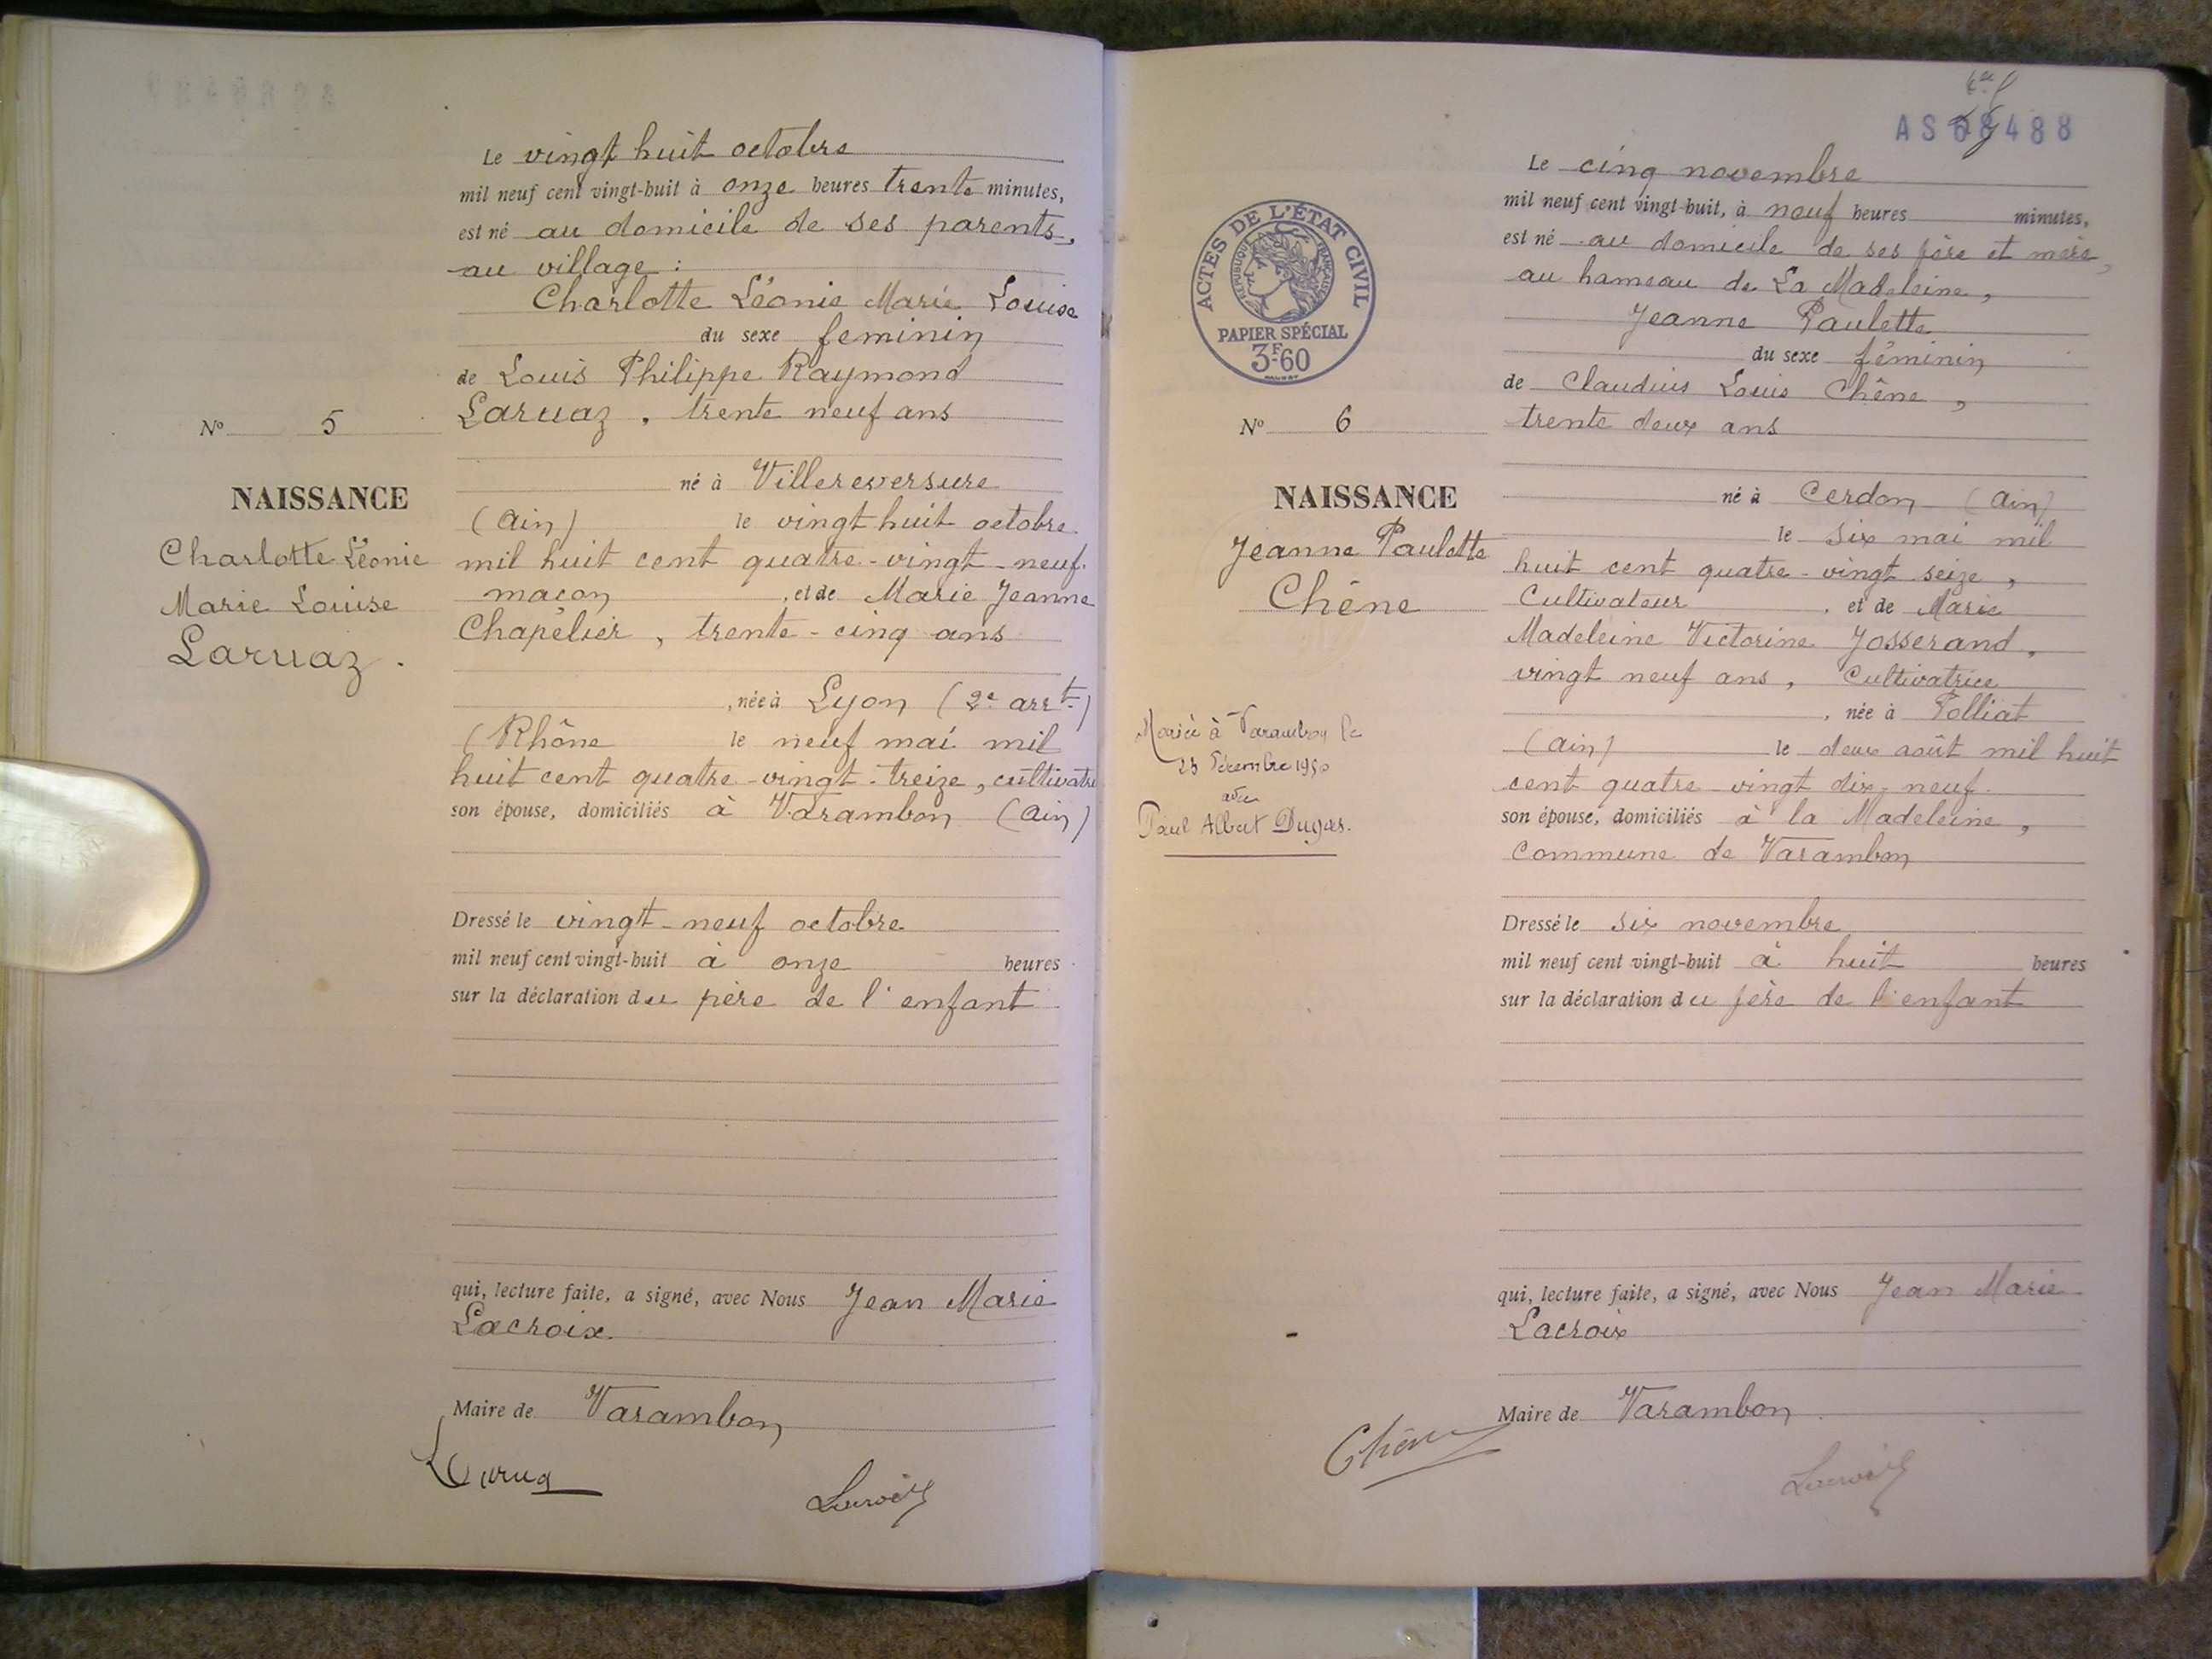 Le vingt huit octobre
mil neuf cent vingt-huit à onze heures trente minutes,
est né au domicile de ses parents,
au village :
Charlotte Léonie Marie Louise
du sexe feminin
de Louis Philippe Raymond
Laruaz, trente neuf ans
né à Villereversure
(Ain) le vingt huit octobre
mil huit cent quatre-vingt-neuf.
maçon, et de Marie Jeanne
Chapelier, trente-cinq ans
, née à Lyon (2e arrt)
(Rhône le neuf mai mil
huit cent quatre-vingt-treize, cultivatri
son épouse, domiciliés à Varambon (Ain)
Dressé le vingt-neuf octobre
mil neuf cent vingt-huit à onze heures
sur la déclaration du père de l'enfant
qui, lecture faite, a signé, avec Nous Jean Marie
Lacroix.
Maire de Varambon
Lacroix
N° 5
NAISSANCE
Charlotte Léonie
Marie Louise
Laruaz.
AS 488
Le cinq novembre
mil neuf cent vingt-huit, à neuf heures minutes,
est né au domicile de ses père et mère,
au hameau de La Madeleine,
Jeanne Paulette
du sexe féminin
de Claudius Louis Chêne,
trente deux ans
né à Cerdon (Ain)
le six mai mil
huit cent quatre-vingt seize,
Cultivateur, et de Marie
Madeleine Victorine Josserand,
vingt neuf ans, Cultivatrice
, née à Polliat
(Ain) le deux août mil huit
cent quatre-vingt dix-neuf.
son épouse, domiciliés à la Madeleine,
commune de Varambon
Dressé le six novembre
mil neuf cent vingt-huit à huit heures
sur la déclaration du père de l'enfant
qui, lecture faite, a signé, avec Nous Jean Marie
Lacroix
Maire de Varambon
Chêne
Lacroix
ACTES DE L'ÉTAT CIVIL
RÉPUBLIQUE FRANÇAISE
PAPIER SPÉCIAL
3F60
N° 6
NAISSANCE
Jeanne Paulette
Chêne
Mariée à Varambon le
23 Décembre 1950
avec
Paul Albert Dugas.